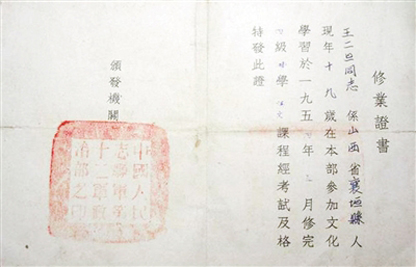 修業證書
王二旦同志 係山西省襄垣縣人
現年十八歲在本部參加文化
學習於一九五 年 月修完
級 學 課程經考試及格
特發此證
頒發機關
中國人民
志願軍第
十二軍
部之印